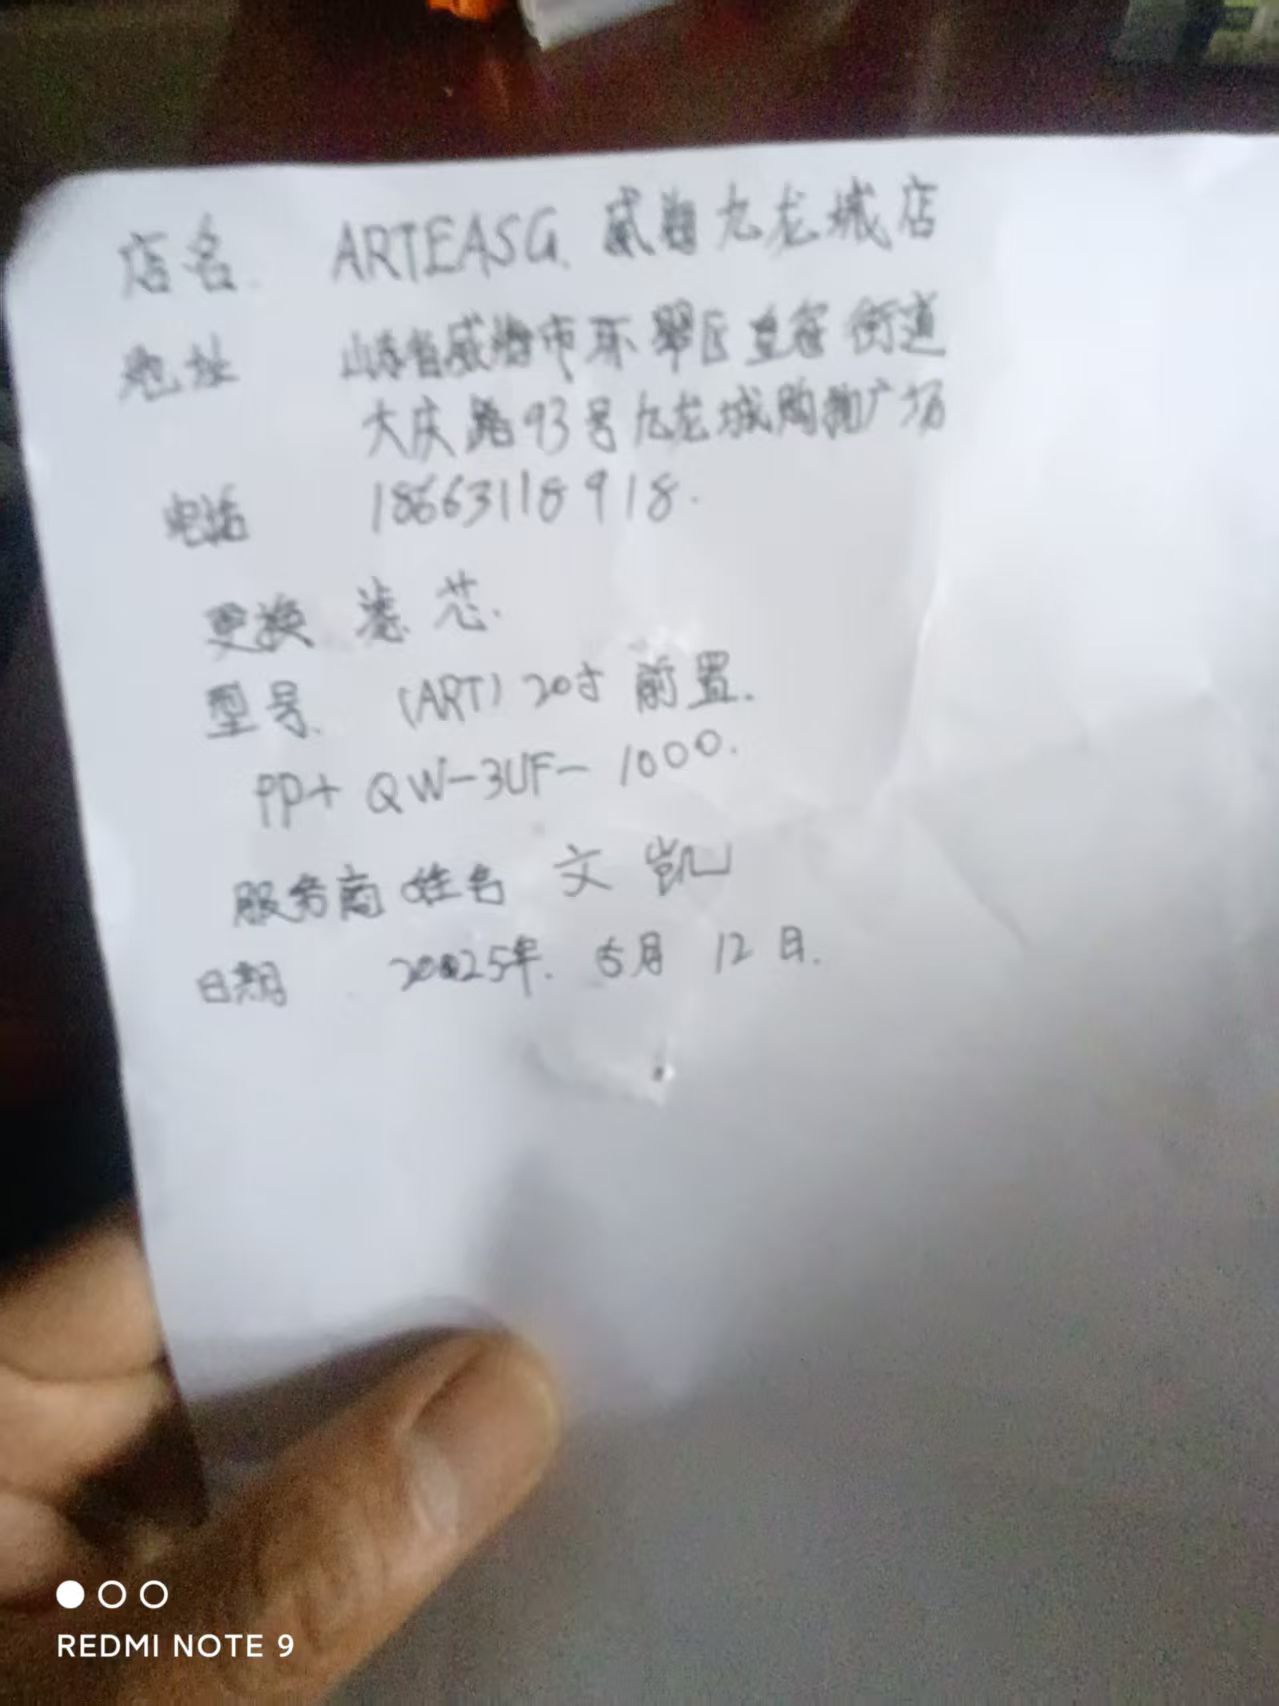 店名. ARTEASG. 威海九龙城店
地址 山东省威海市环翠区皇冠街道
大庆路93号九龙城购物广场
电话 18663118918.
更换 滤芯.
型号. (ART) 20寸 前置.
PP+ QW-3UF-1000.
服务商姓名 文凯
日期 2025年. 5月 12日.
REDMI NOTE 9